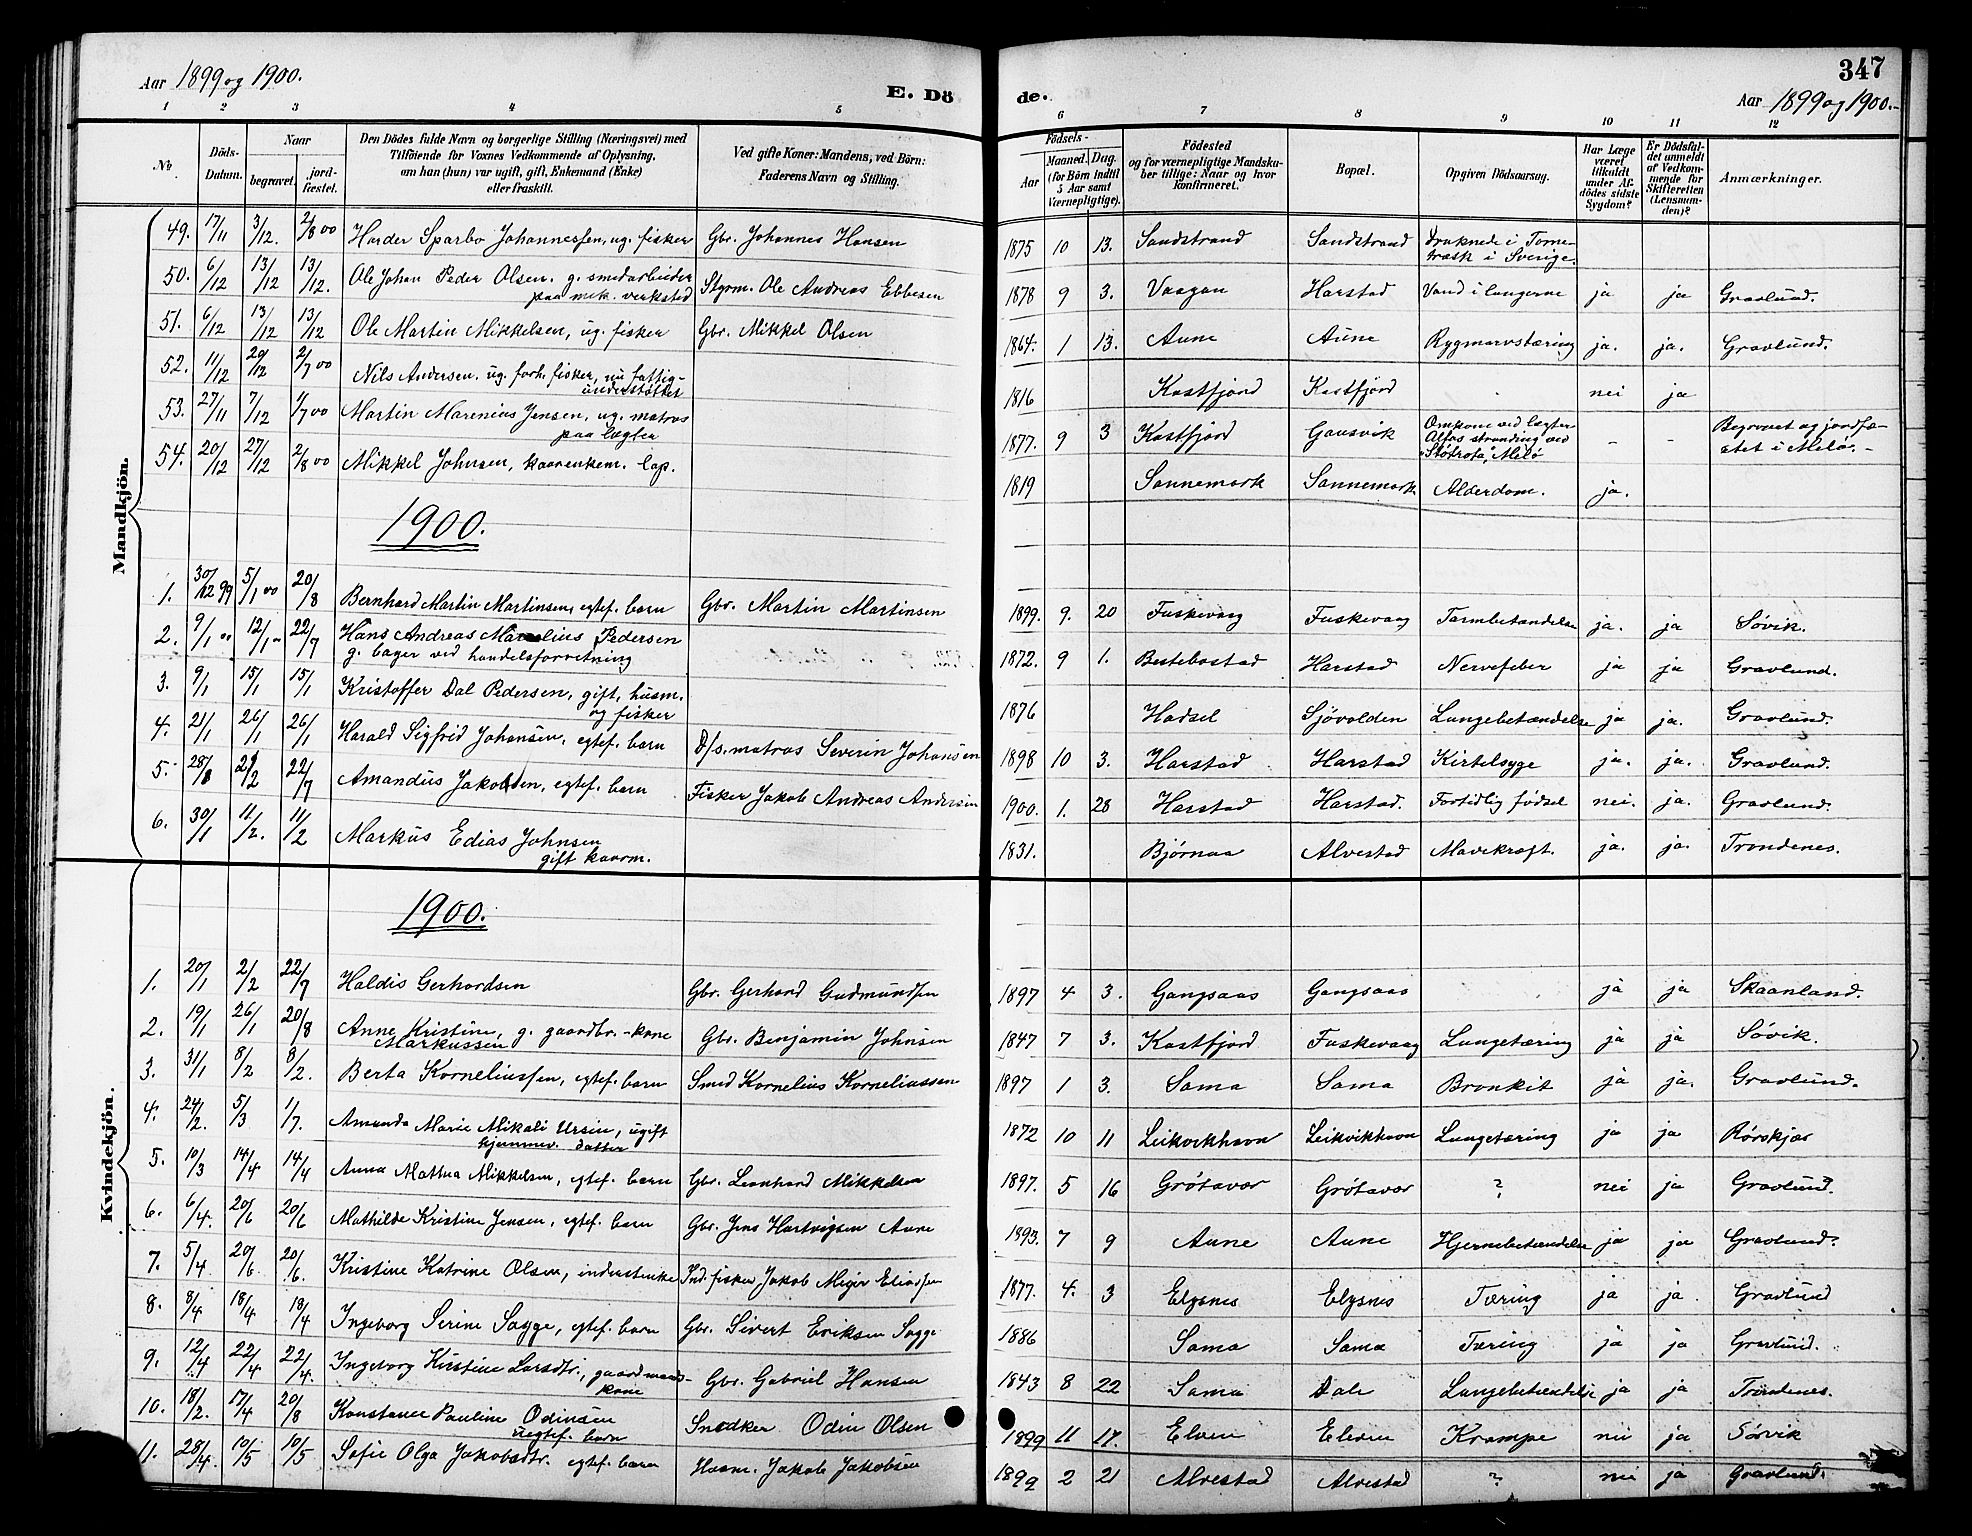 347
Aar 1899 og 1900.
E. Dö
de.
Aar 1899 og 1900.
1 2 3 4 5 6 7 8 9 10 11 12
No
Döds-Datum.
Naar
begravet.
jord-fæstet.
Den Dödes fulde Navn og borgerlige Stilling (Næringsvei) med
Tilföiende for Voxnes Vedkommende af Oplysning,
om han (hun) var ugift, gift, Enkemand (Enke)
eller fraskilt.
Ved gifte Koner: Mandens, ved Börn:
Faderens Navn og Stilling.
Födsels-
Aar
Maaned. Dag.
(for Börn indtil
5 Aar samt
Værnepligtige).
Födested
og for værnepligtige Mandsku-
ber tillige: Naar og hvor
konfirmeret.
Bopæl.
Opgiven Dödsaarsag.
Har Læge
været
tilkaldt
under Af-
dödes sidste
Sygdom?
Er Dödsfal-
det anmeldt
af Vedkom-
mende for
Skifteretten
(Lensman-
den)?
Anmærkninger.
Mandkjön.
49. 17/11 3/12. 2/8 00 Harder Sparbo Johannessen, ug. fisker Gbr. Johannes Hansen 1875 10 13. Sandstrand Sandstrand druknede i Torne-
træsk i Sverige.
50. 6/12 13/12 13/12. Ole Johan Peder Olsen. g. smedarbeider Styrm. Ole Andreas Ebbesen 1878 9 3. Vaagan Harstad Vand i lungerne ja ja Gravlund.
paa mek. verksted
51. 6/12 13/12 13/12 Ole Martin Mikkelsen, ug. fisker Gbr. Mikkel Olsen 1864. 1 13. Aune Aune Rygmarvstæring ja. ja. Gravlund.
52. 11/12 29/12 2/7 00 Nils Andersen, ug. forh. fisker, nu fattig- 1816 Kastfjord Kastfjord nei ja
understøttet
53. 27/11 7/12 1/7 00 Martin Marenius Jensen, ug. matros 1877. 9 3 Kastfjord Gausvik Omkom ved lægter - - Begravet og jordfæ-
paa lægter Alfas stranding ved stet i Melø. -
"Støtrota", Melø
54. 20/12 27/12 2/8 00 Mikkel Johnsen, kaarenkem. lap. 1819 Sannemark Sannemark Alderdom. ja.
1900.
1. 30/12 99 5/1 00 20/8 Bernhard Martin Martinsen, egtef. barn Gbr. Martin Martinsen 1899. 9. 20 Fuskevaag Fuskevaag Tarmbetændelse ja. ja Søvik.
2. 9/1 00 12/1 22/7 Hans Andreas Pedersen 1872. 9 1. Bestebostad Harstad Nervefeber ja ja Gravlund.
g. bager ved handelsforretning
3. 9/1 15/1 15/1 Kristoffer Dal Pedersen, gift, husm. 1876 Hadsel Sjøvolden Lungebetændelse ja ja. Gravlund.
og fisker
4. 21/1 26/1 26/1 Harald Sigfrid Johansen, egtef. barn D/s. matros Severin Johansen 1898 10 3. Harstad Harstad Kirtelsyge ja. ja. Gravlund.
5. 22/7 Amandus Jakobsen, egtef. barn Fisker Jakob Andreas Andersen 1900. 1. 28 Harstad Harstad. Fortidlig fødsel nei. ja. Gravlund.
6. 30/1 11/2. 11/2 Markus Edias Johnsen 1831. Bjørnaa Alvestad Mavekræft. ja. ja. Trondenes.
gift kaarm.
Kvindekjön.
1900.
1. 20/1 2/2 22/7 Haldis Gerhardsen Gbr. Gerhard Gudmundsen 1897 4 3. Gangsaas Gangsaas ja ja Skaanland.
2. 19/1 26/1 20/8 Anne Kristine, g. gaardbr.-kone Gbr. Benjamin Johnsen 1847 7 3. Kastfjord Fuskevaag Lungetæring ja ja Søvik.
Markussen
3. 31/1 8/2 8/2. Berta Korneliussen, egtef. barn Smed Kornelius Korneliussen 1897 1 3. Sama Sama Bronkit ja ja. Gravlund.
4. 24/2. 5/3 1/7. Amanda Marie Mikali Ursin, ugift 1872 10 11 Leikvikhavn Leikvikhavn Lungetæring ja ja Rørskjær
hjemmev. datter
5. 10/3 14/4 14/4 Anna Mathea Mikkelsen, egtef. barn Gbr. Leonhard Mikkelsen 1897. 5 16 Grøtavær Grøtavær ? nei ja Gravlund.
6. 6/4. 20/6 20/6 Mathilde Kristine Jensen, egtef. barn Gbr. Jens Hartvigsen Aune 1893. 7 9 Aune Aune Hjernebetændelse ja ja Gravlund.
7. 5/4 20/6. 20/6. Kristine Katrine Olsen, inderstenke Ind. fisker Jakob Meier Eliassen 1877. 4. 3 Elgsnes Elgsnes Tæring ja ja. Gravlund
8. 8/4 18/4 18/4 Ingeborg Serine Sagge, egtef. barn Gbr. Sivert Eriksen Sagge 1886 Sama Sama Tæring ja ja Gravlund.
9. 12/4 22/4 22/4. Ingeborg Kirstine Larsdtr., gaardmands- Gbr. Gabriel Hansen 1843 8 22 Sama Dale Lungebetændelse ja ja Trondenes.
kone
10. 18/2. 17/4 20/8 Konstance Pauline Odinsen Snedker Odin Olsen 1899 11 17. Elven Elven Krampe nei ja Sørvik
uegtef. barn
11. 28/4. 10/5 10/5 Sofie Olga Jakobsdtr. egtef. barn Husm. Jakob Jakobsen 1899 2 21 Alvestad Alvestad ? nei ja Gravlund.